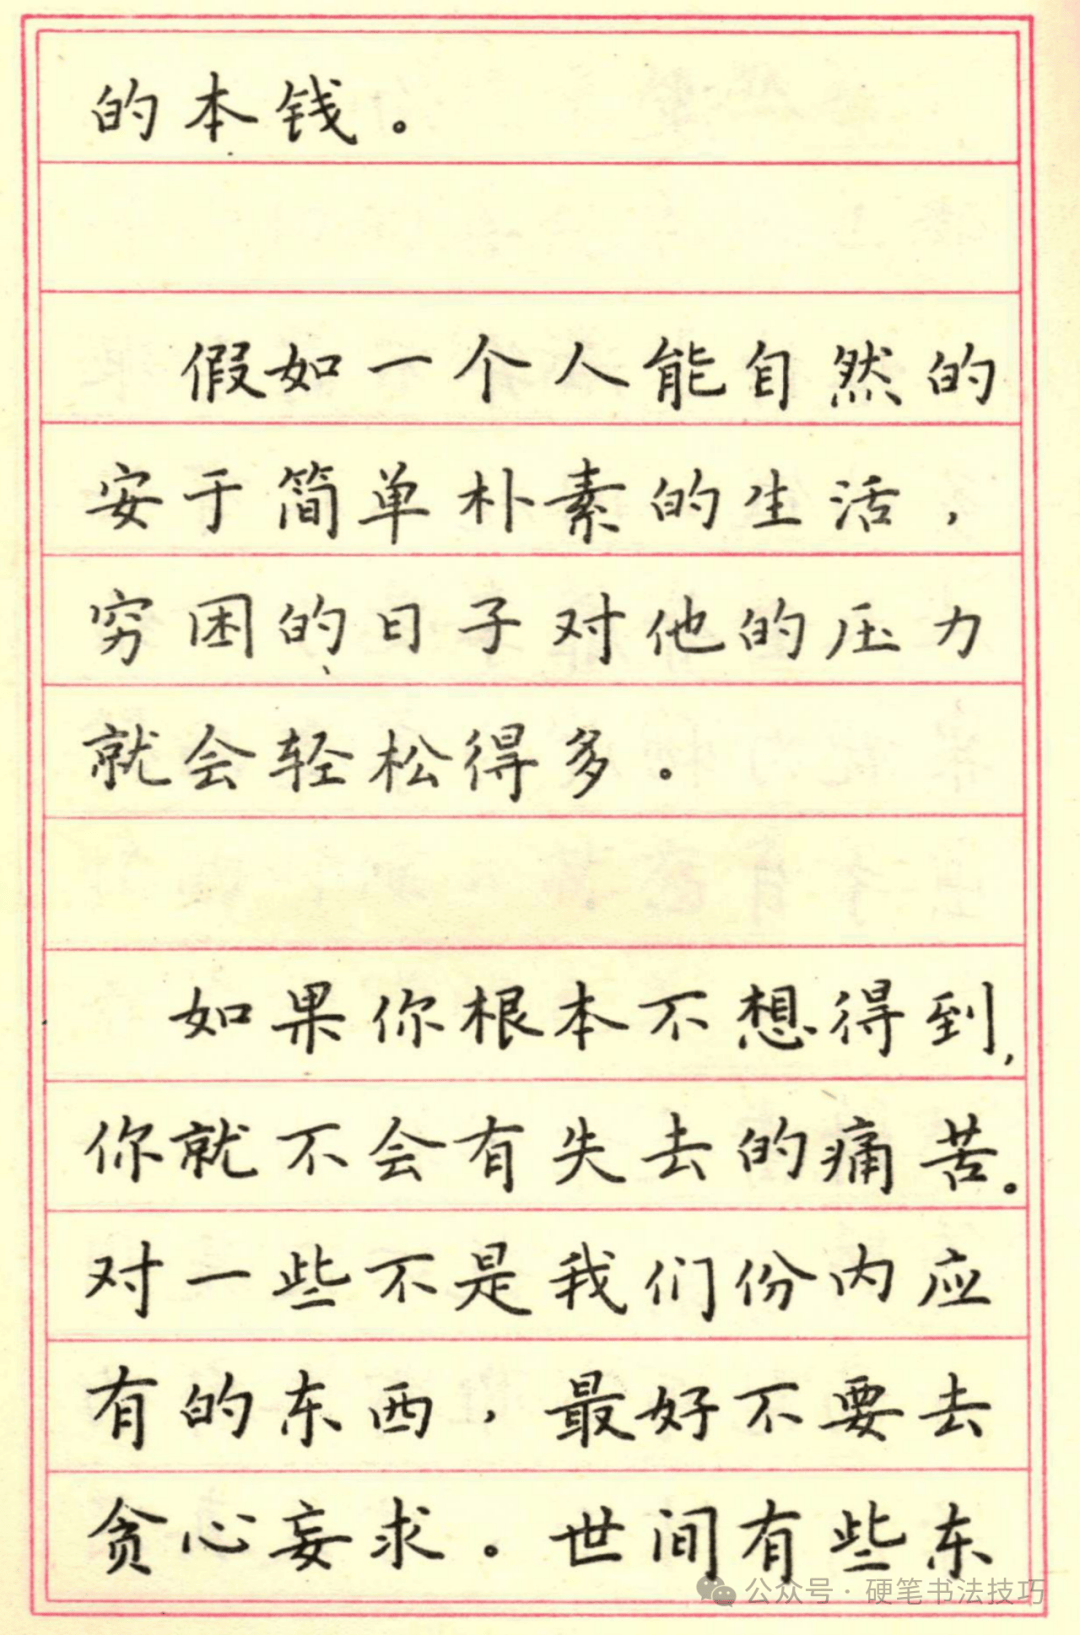 的本钱。
假如一个人能自然的
安于简单朴素的生活，
穷困的日子对他的压力
就会轻松得多。
如果你根本不想得到，
你就不会有失去的痛苦。
对一些不是我们份内应
有的东西，最好不要去
贪心妄求。世间有些东
公众号·硬笔书法技巧